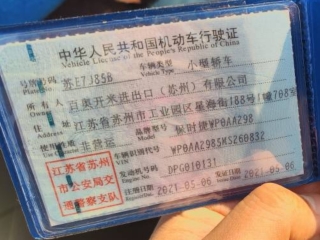 中华人民共和国机动车行驶证
Vehicle License of the People's Republic of China
号牌号码 苏E7J85B 车辆类型 小型轿车
Vehicle Type
所有人 百奥开米进出口（苏州）有限公司
住址 江苏省苏州市工业园区星海街188号1幢208室
使用性质 非营运 品牌型号 保时捷WP0AA298
江苏省苏州市公安局交通警察支队
车辆识别代号 WP0AA2985KS260832
VIN
发动机号码 DPG010131
注册日期 2021-05-06 发证日期 2021-05-06